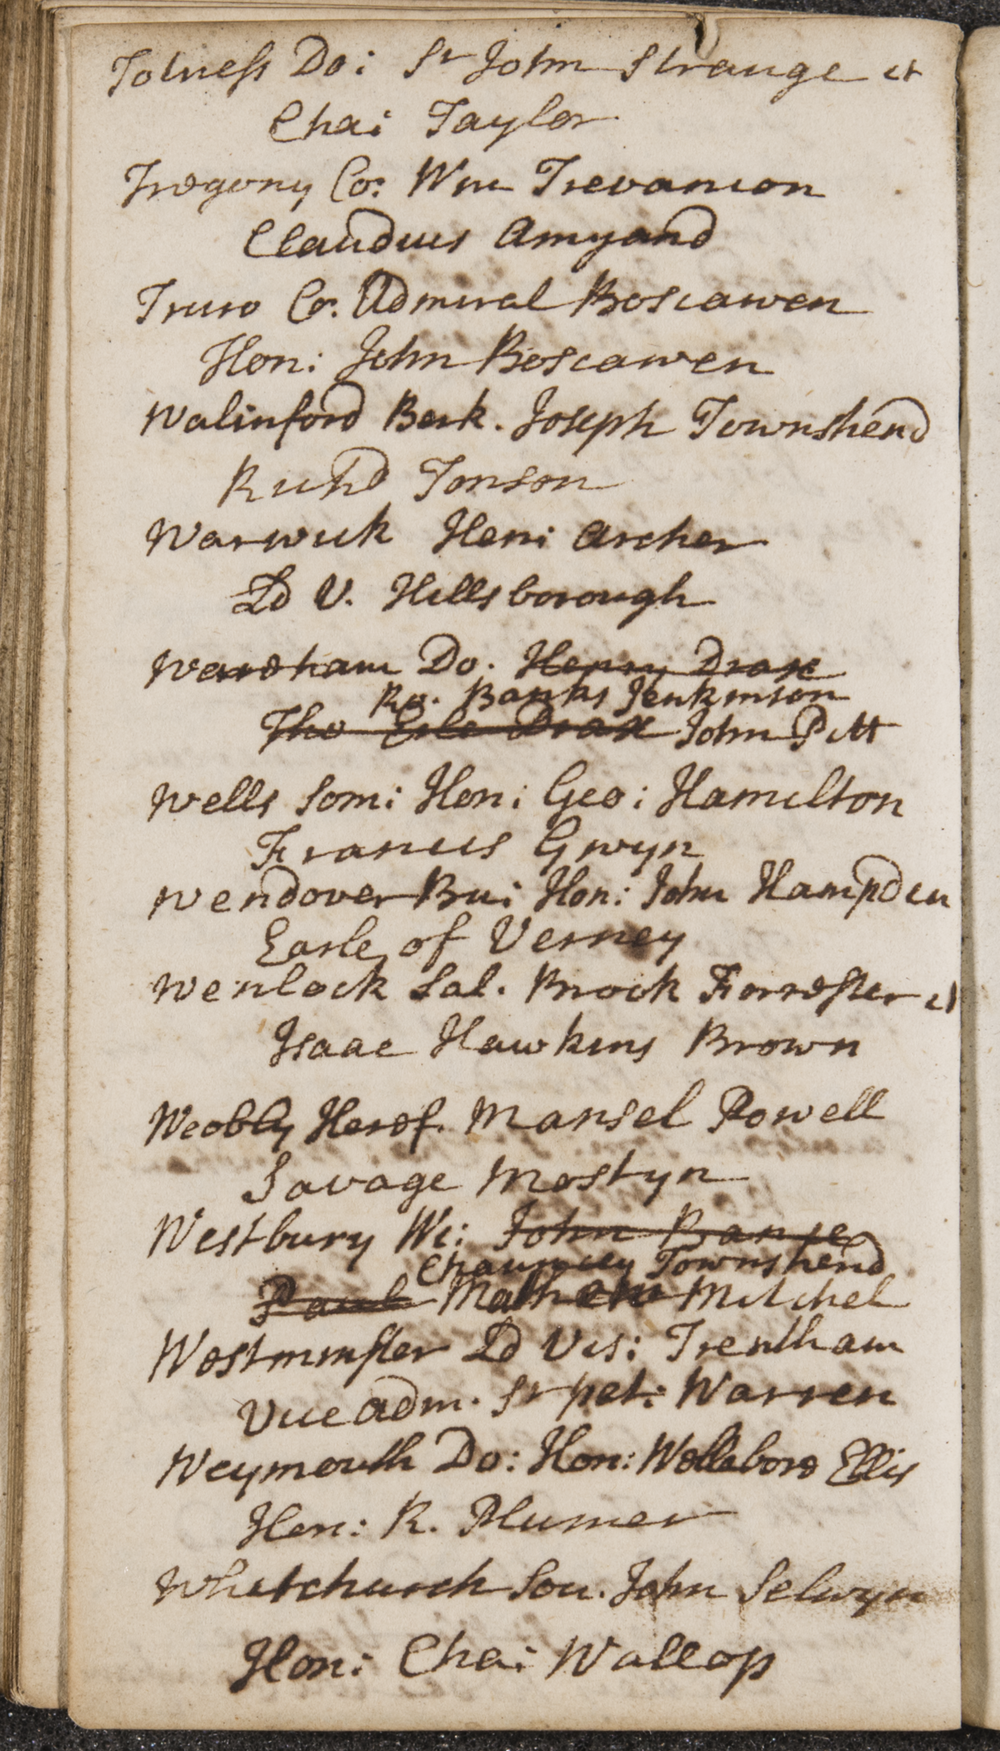 Totness Do: Sr John Strange et
Cha: Taylor
Tregony Co: Wm Trevanion
Claudius Amyand
Truro Co: Admiral Boscawen
Hon: John Boscawen
Walinford Berk. Joseph Townshend
Richd Tonson
Warwick Hen: Archer
Ld V. Hillsborough
Wareham Do. Henry Drax
Ro. Banks Jenkinson
Tho Erle Drax John Pitt
Wells Som: Hon: Geo: Hamilton
Francis Gwyn
Wendover Bu: Hon: John Hampden
Earle of Verney
Wenlock Sal. Brook Forrester et
Isaac Hawkins Brown
Weobly Heref. Mansel Powell
Savage Mostyn
Westbury Wi: John Bance
Chauncey Townshend
Paul Mathew Mitchel
Westminster Ld Vis: Trentham
Vice adm. Sr pet: Warren
Weymouth Do: Hon: Wellebore Ellis
Hen: R. Plumer
Whitchurch Sou. John Selwyn
Hon: Cha: Wallop